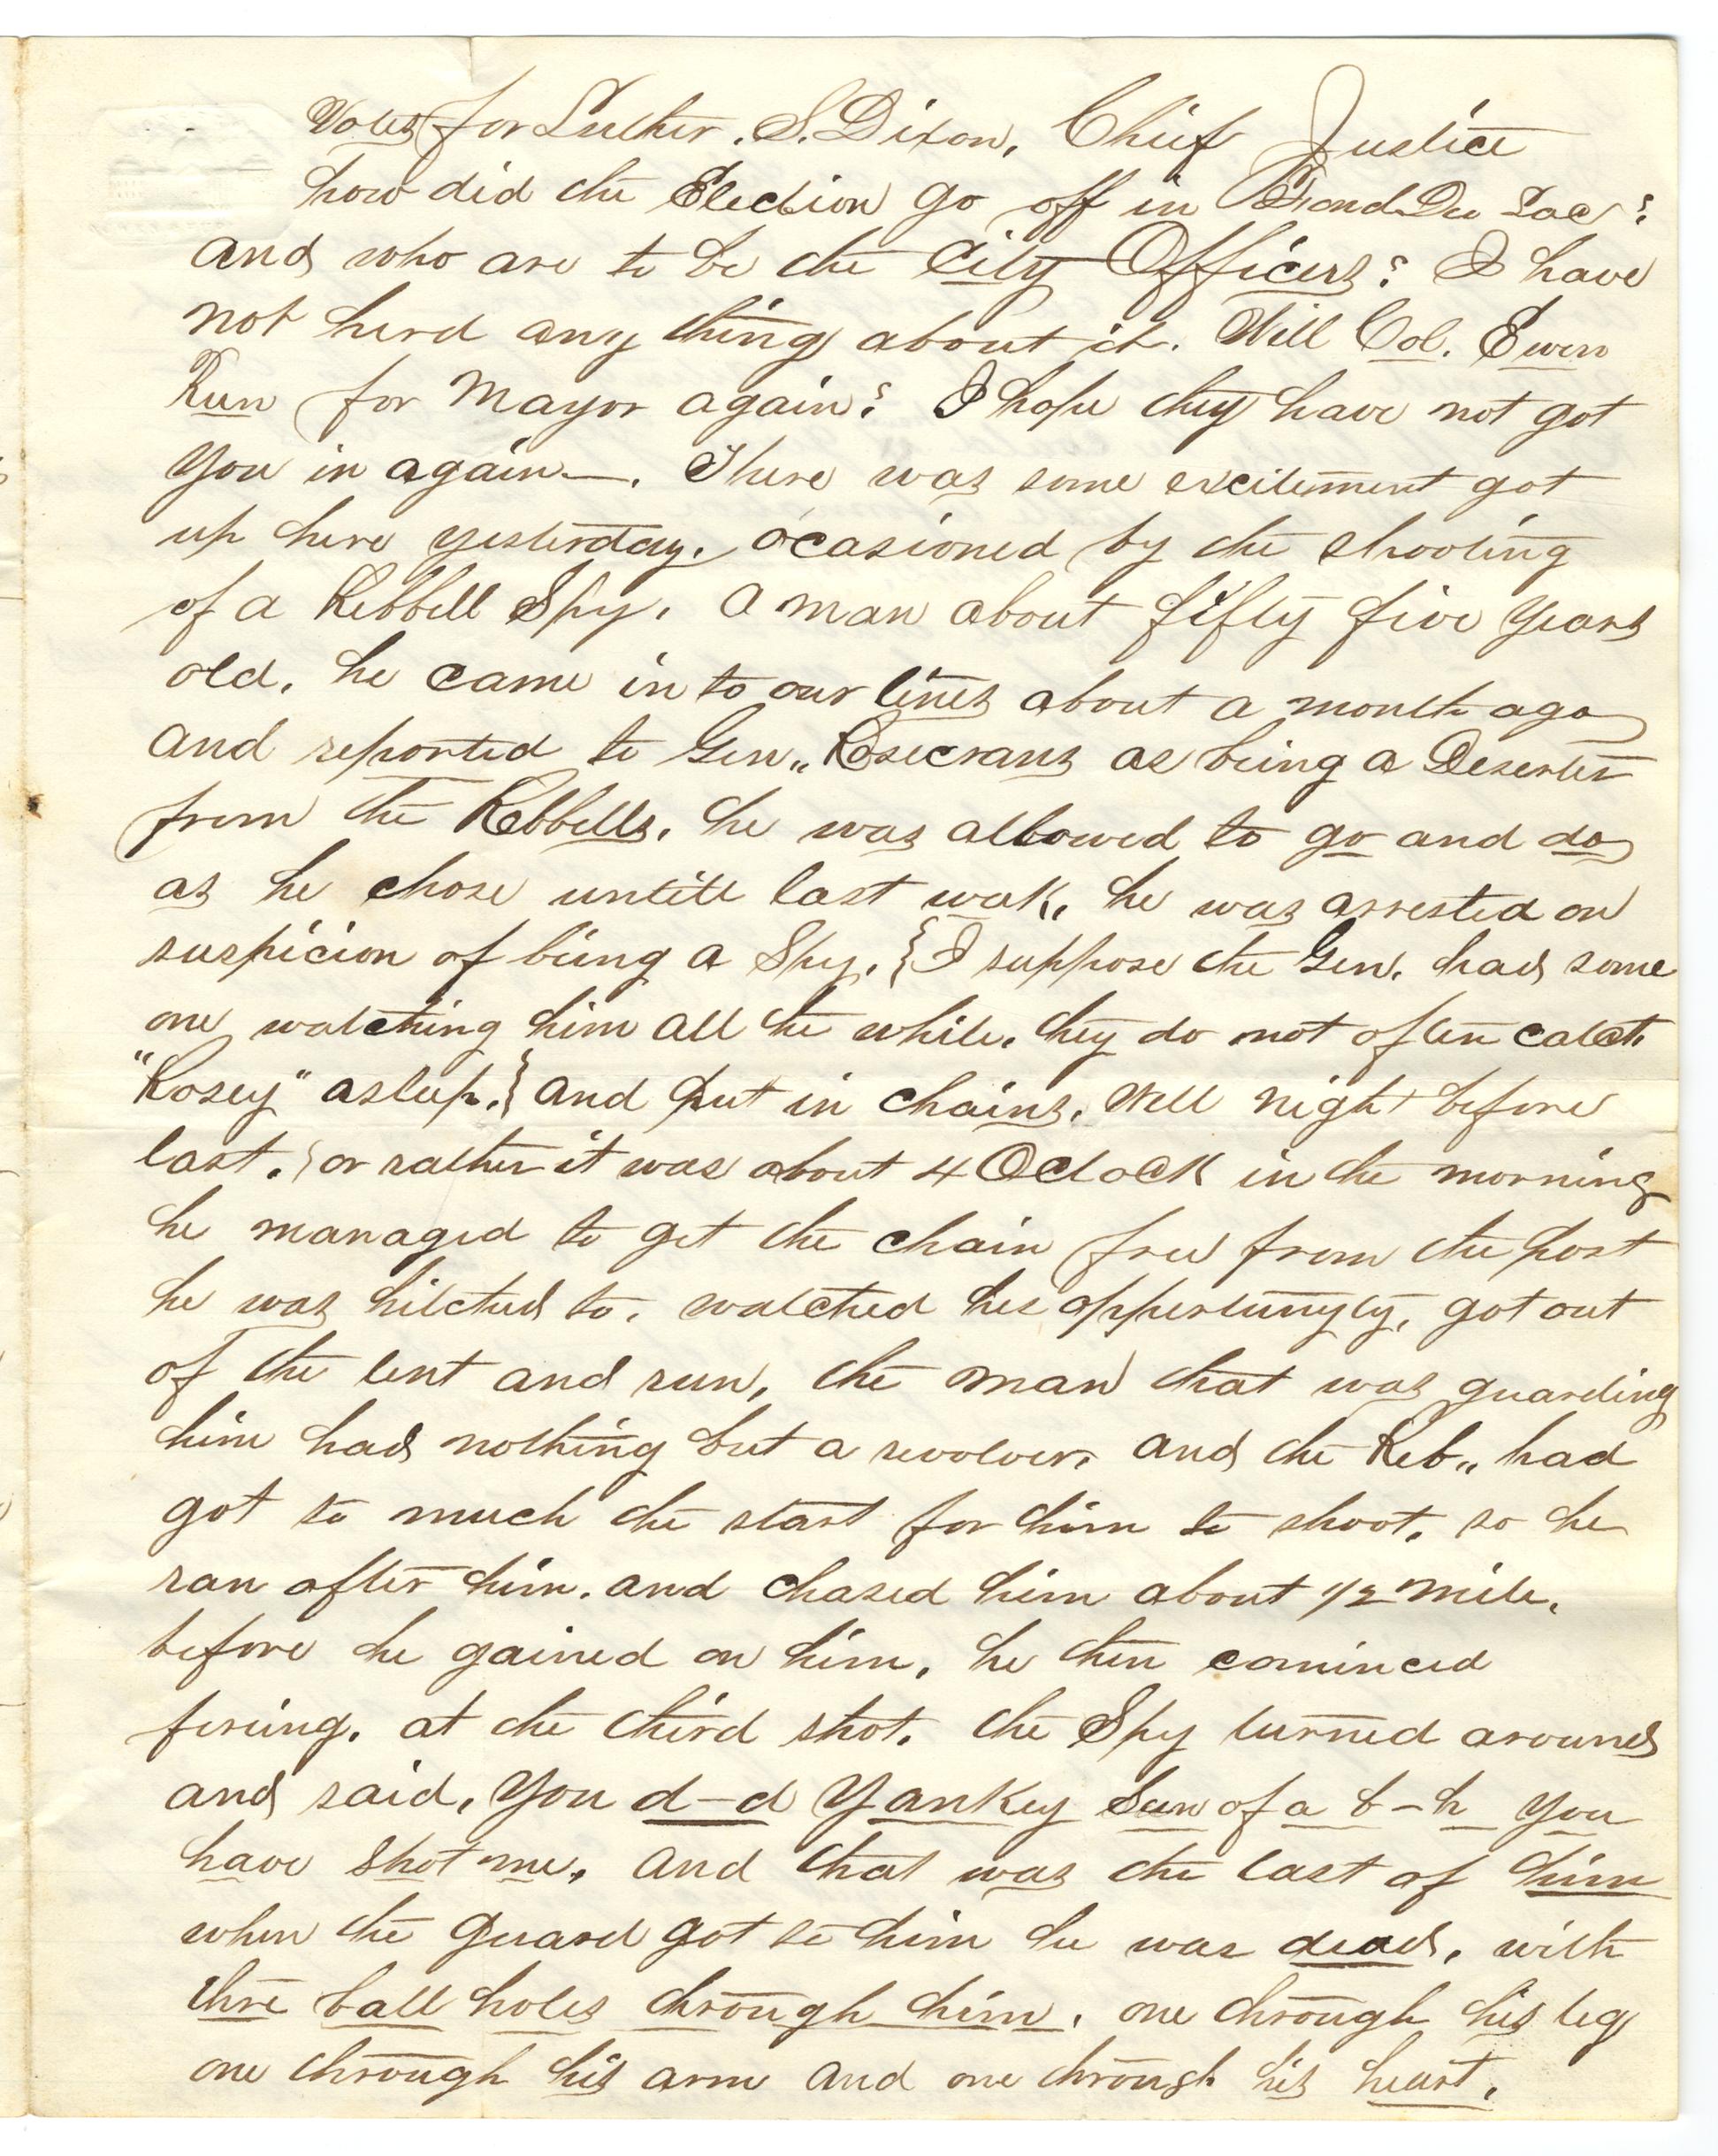 Votes for Luther. S. Dixon, Chief Justice
how did the Election go off in Fond Du Lac?
and who are to be the City Officers? I have
not herd any thing about it. Will Col. Ewen
Run for Mayor again? I hope they have not got
you in again—. There was some excitement got
up here yesterday, ocasioned by the shooting
of a Rebbell Spy, a man about fifty five years
old, he came in to our lines about a month ago
and reported to Gen,, Rosecrans as being a Deserter
from the Rebbells, he was allowed to go and do
as he chose untill last weak, he was arrested on
suspicion of being a Spy, {I suppose the Gen, had some
one watching him all the while, they do not often catch
"Rosey" asleep,} and put in chains, Well night before
last, or rather it was about 4 Oclock in the morning
he managed to get the chain free from the post
he was hitched to, watched his oppertunyty, got out
of the tent and run, the man that was guarding
him had nothing but a revolver, and the Reb,, had
got to much the start for him to shoot, so he
ran after him, and chased him about 1/2 mile,
before he gained on him, he then cominced
fireing, at the third shot, the Spy turned around
and said, You d—d Yankey Sun of a b—h you
have shot me, and that was the last of him
when the guard got to him he was dead, with
thre ball holes through him, one through his leg
one through his arm and one through his heart,